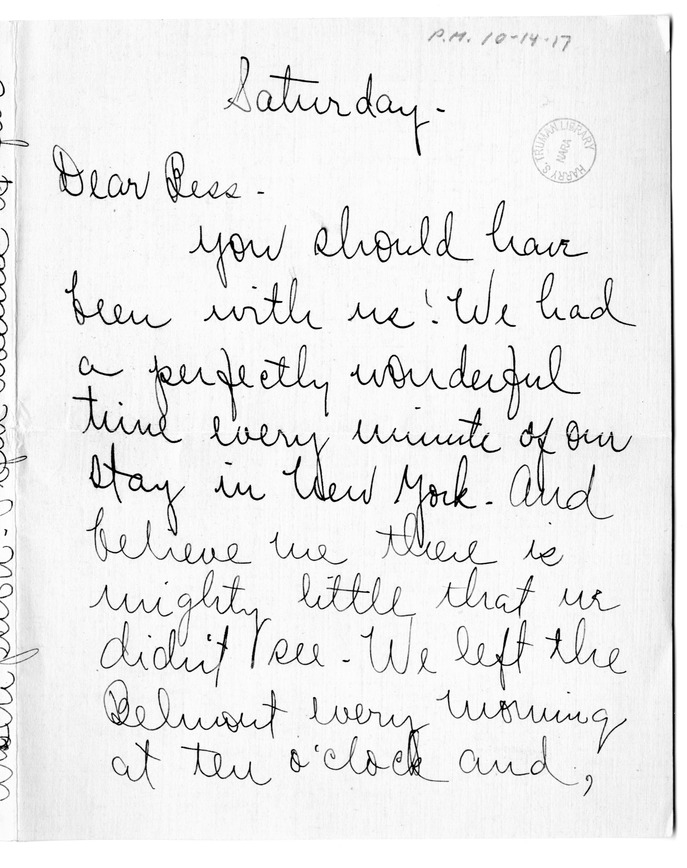 P.M. 10-14-17
Saturday-
HARRY S. TRUMAN LIBRARY
NARA
Dear Bess-
You should have
been with us! We had
a perfectly wonderful
time every minute of our
stay in New York. And
believe me there is
mighty little that we
didn't see. We left the
Belmont every morning
at ten o'clock and,